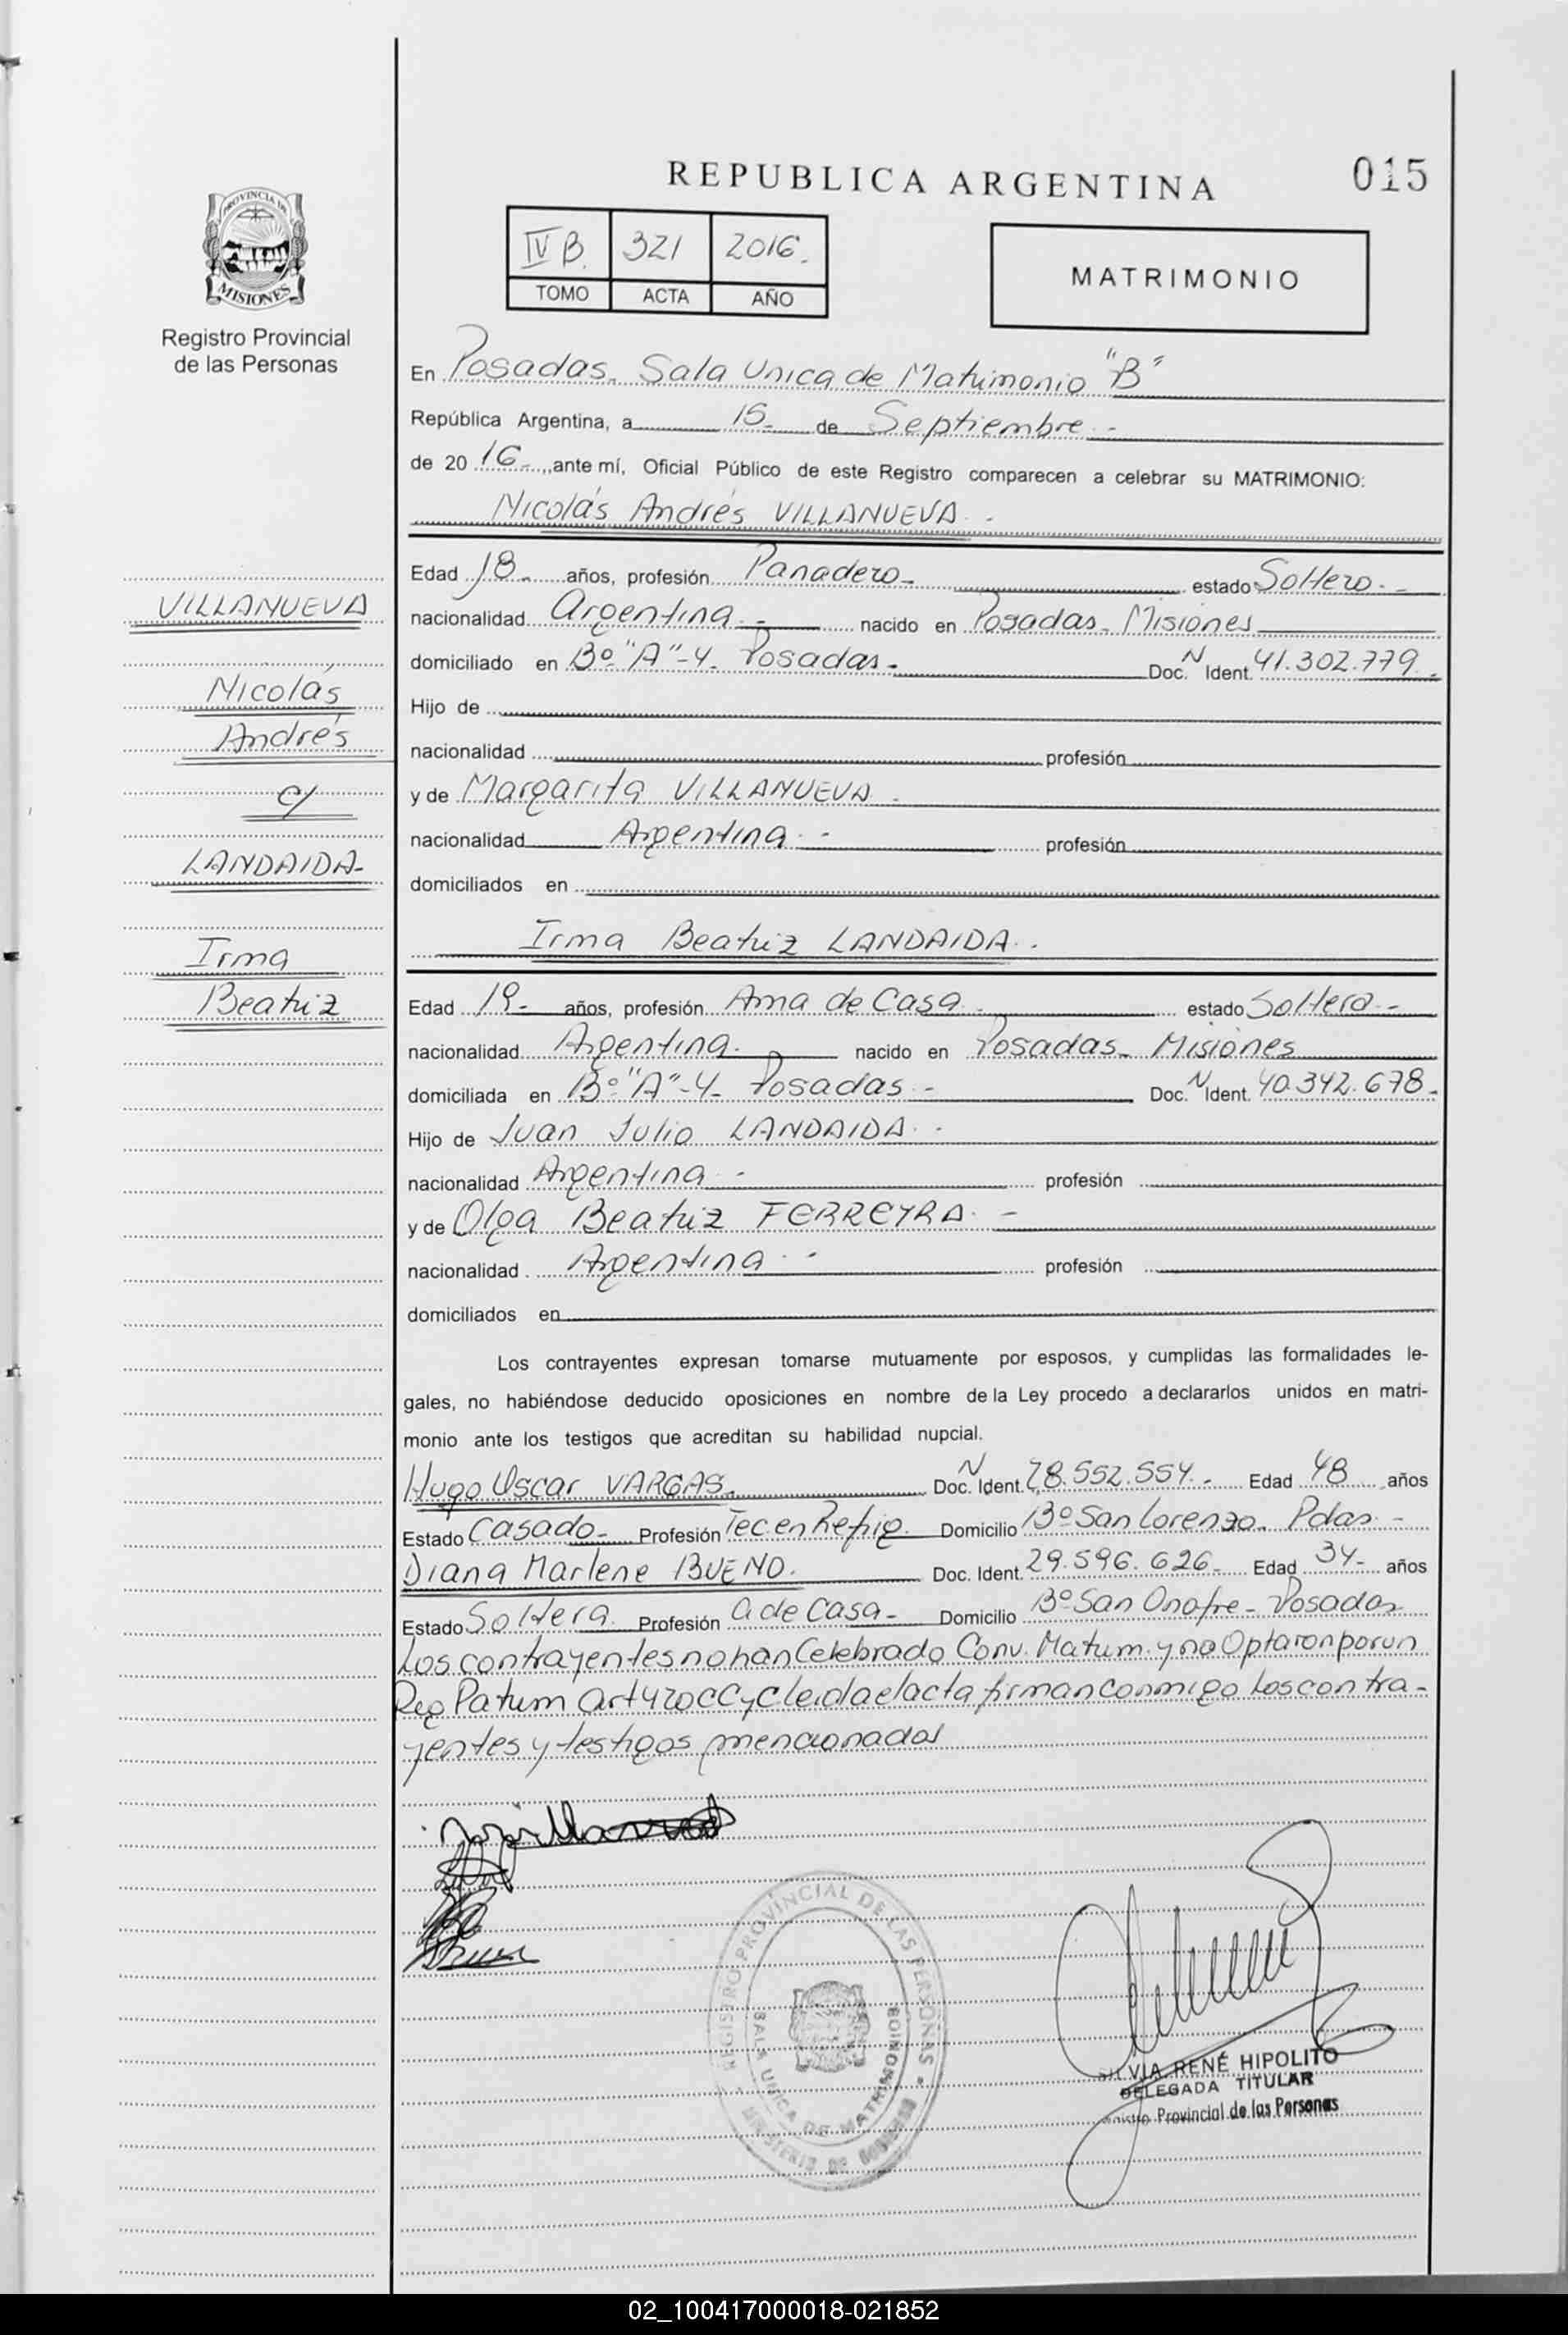 REPUBLICA ARGENTINA
015
PROVINCIA DE
MISIONES
Registro Provincial
de las Personas
IV B. 321 2016.
TOMO ACTA AÑO
MATRIMONIO
En Posadas. Sala Unica de Matrimonio "B"
República Argentina, a 15- de Septiembre -
de 20 16- ,,ante mí, Oficial Público de este Registro comparecen a celebrar su MATRIMONIO:
Nicolás Andrés VILLANUEVA. -
Edad 18- años, profesión Panadero- estado Soltero. -
VILLANUEVA
nacionalidad Argentina. - nacido en Posadas- Misiones
domiciliado en Bº "A"-4- Posadas- Doc. N Ident. 41.302.779.-
Nicolás
Hijo de
Andrés
nacionalidad profesión
c/
y de Margarita VILLANUEVA -
nacionalidad Argentina. - profesión
LANDAIDA-
domiciliados en
Irma Beatriz LANDAIDA. -
Irma
Beatriz
Edad 19- años, profesión Ama de Casa. estado Soltera.-
nacionalidad Argentina. nacido en Posadas- Misiones
domiciliada en Bº "A"-4- Posadas - Doc. N Ident. 40.342.678-
Hijo de Juan Julio LANDAIDA. -
nacionalidad Argentina - profesión
y de Olga Beatriz FERREYRA. -
nacionalidad Argentina. - profesión
domiciliados en
Los contrayentes expresan tomarse mutuamente por esposos, y cumplidas las formalidades le-
gales, no habiéndose deducido oposiciones en nombre de la Ley procedo a declararlos unidos en matri-
monio ante los testigos que acreditan su habilidad nupcial.
Hugo Oscar VARGAS. Doc. N Ident. 28.552.554.- Edad 48 años
Estado Casado- Profesión Tec en Refrig. Domicilio Bº San Lorenzo. Pdas -
Diana Marlene BUENO. Doc. Ident. 29.596.626- Edad 34- años
Estado Soltera. Profesión A de Casa- Domicilio Bº San Onofre- Posadas
Los contrayentes no han Celebrado Conv. Matrim. y no Optaron por un
Reg Patrim Art 420 CCyC leida el acta firman conmigo Los contra-
yentes y testigos mencionados
REGISTRO PROVINCIAL DE LAS PERSONAS
SALA UNICA DE MATRIMONIOS
MINISTERIO DE GOBIERNO
SILVIA RENÉ HIPOLITO
DELEGADA TITULAR
Provincial de las Personas
02_100417000018-021852